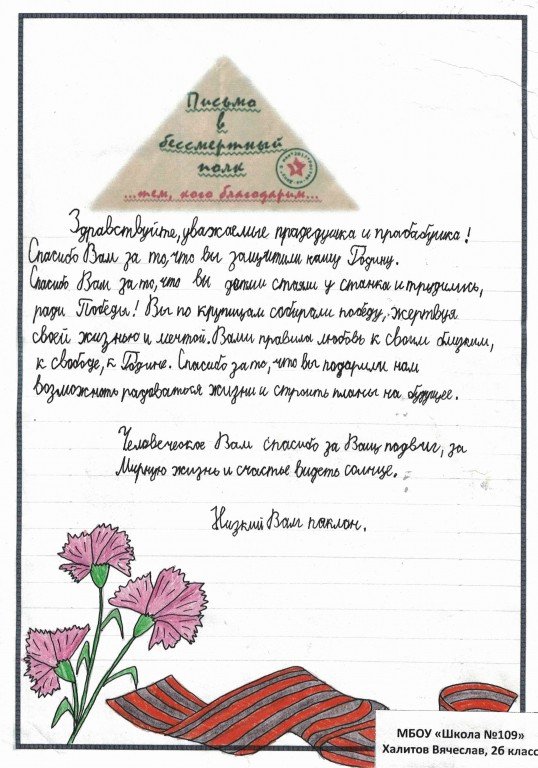 Письмо
в
бессмертный
полк
...тем, кого благодарим...
Здравствуйте, уважаемые прадедушка и прабабушка!
Спасибо Вам за то, что вы защитили нашу Родину.
Спасибо Вам за то, что вы детьми стояли у станка и трудились,
ради Победы! Вы по крупицам собирали победу, жертвуя
своей жизнью и мечтой. Вами правила любовь к своим близким,
к свободе, к Родине. Спасибо за то, что вы подарили нам
возможность радоваться жизни и строить планы на будущее.
Человеческое Вам спасибо за Ваш подвиг, за
Мирную жизнь и счастье видеть солнце.
Низкий Вам паклон.
МБОУ «Школа №109»
Халитов Вячеслав, 2б класс